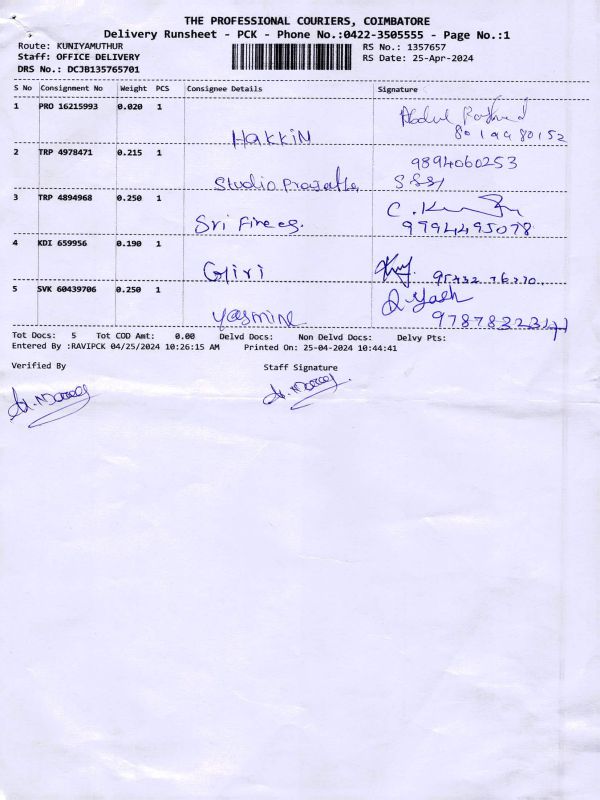 THE PROFESSIONAL COURIERS, COIMBATORE
Delivery Runsheet - PCK - Phone No.:0422-3505555 - Page No.:1
Route: KUNIYAMUTHUR RS No.: 1357657
Staff: OFFICE DELIVERY RS Date: 25-Apr-2024
DRS No.: DCJB135765701
S No Consignment No Weight PCS Consignee Details Signature
1 PRO 16215993 0.020 1
Abdul
HAKKIN
2 TRP 4978471 0.215 1 9894060253
Studio
3 TRP 4894968 0.250 1
Sri 9794495078
4 KDI 659956 0.190 1
Giri
5 SVK 60439706 0.250 1
Yasmine
Tot Docs: 5 Tot COD Amt: 0.00 Delvd Docs: Non Delvd Docs: Delvy Pts:
Entered By :RAVIPCK 04/25/2024 10:26:15 AM Printed On: 25-04-2024 10:44:41
Verified By Staff Signature